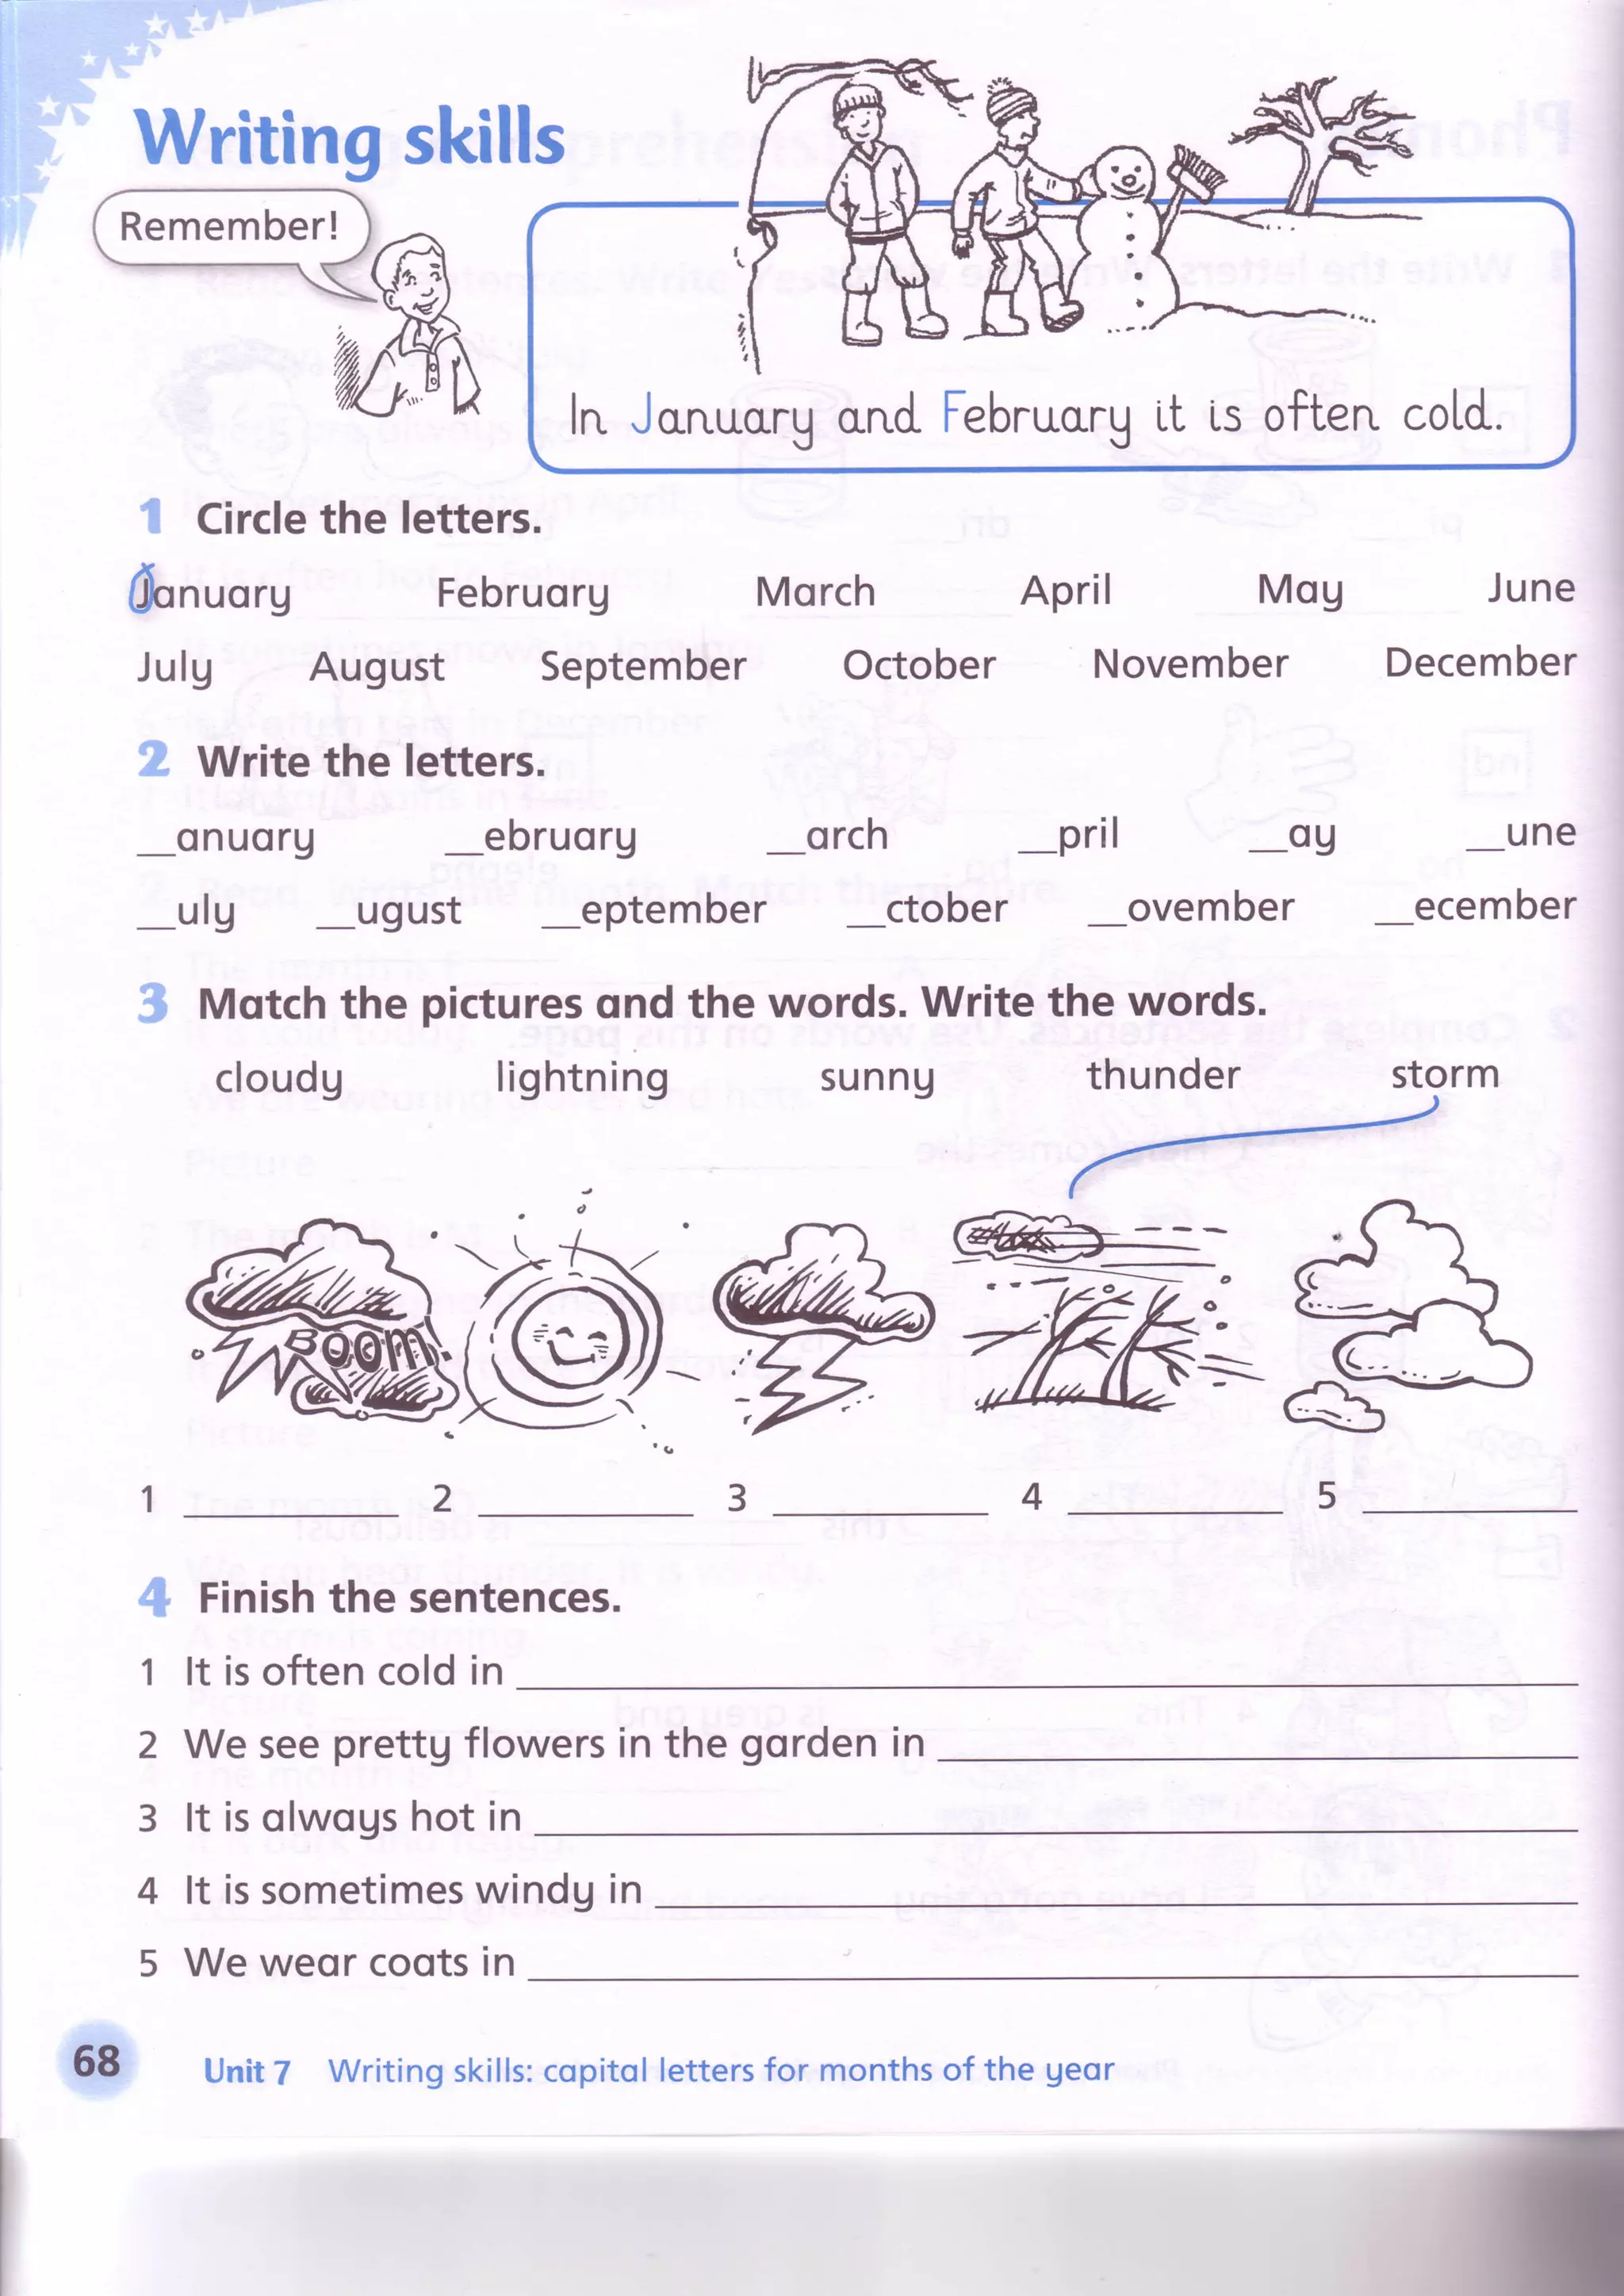 Writing skills
Remember!
In January and February it is often cold.
1 Circle the letters.
January February March April May June
July August September October November December
2 Write the letters.
__anuary __ebruary __arch __pril __ay __une
__uly __ugust __eptember __ctober __ovember __ecember
3 Match the pictures and the words. Write the words.
cloudy lightning sunny thunder storm
BOOM!
1 ________ 2 ________ 3 ________ 4 ________ 5 ________
4 Finish the sentences.
1 It is often cold in ________
2 We see pretty flowers in the garden in ________
3 It is always hot in ________
4 It is sometimes windy in ________
5 We wear coats in ________
68 Unit 7 Writing skills: capital letters for months of the year